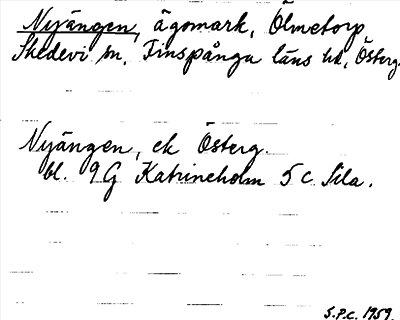 Nyängen, ägomark, Ölmetorp
Skedevi sn, Finspånga läns hd, Österg.
Nyängen, ek Österg.
bl. 9G Katrineholm 5c Sila.
S.P.C. 1959.